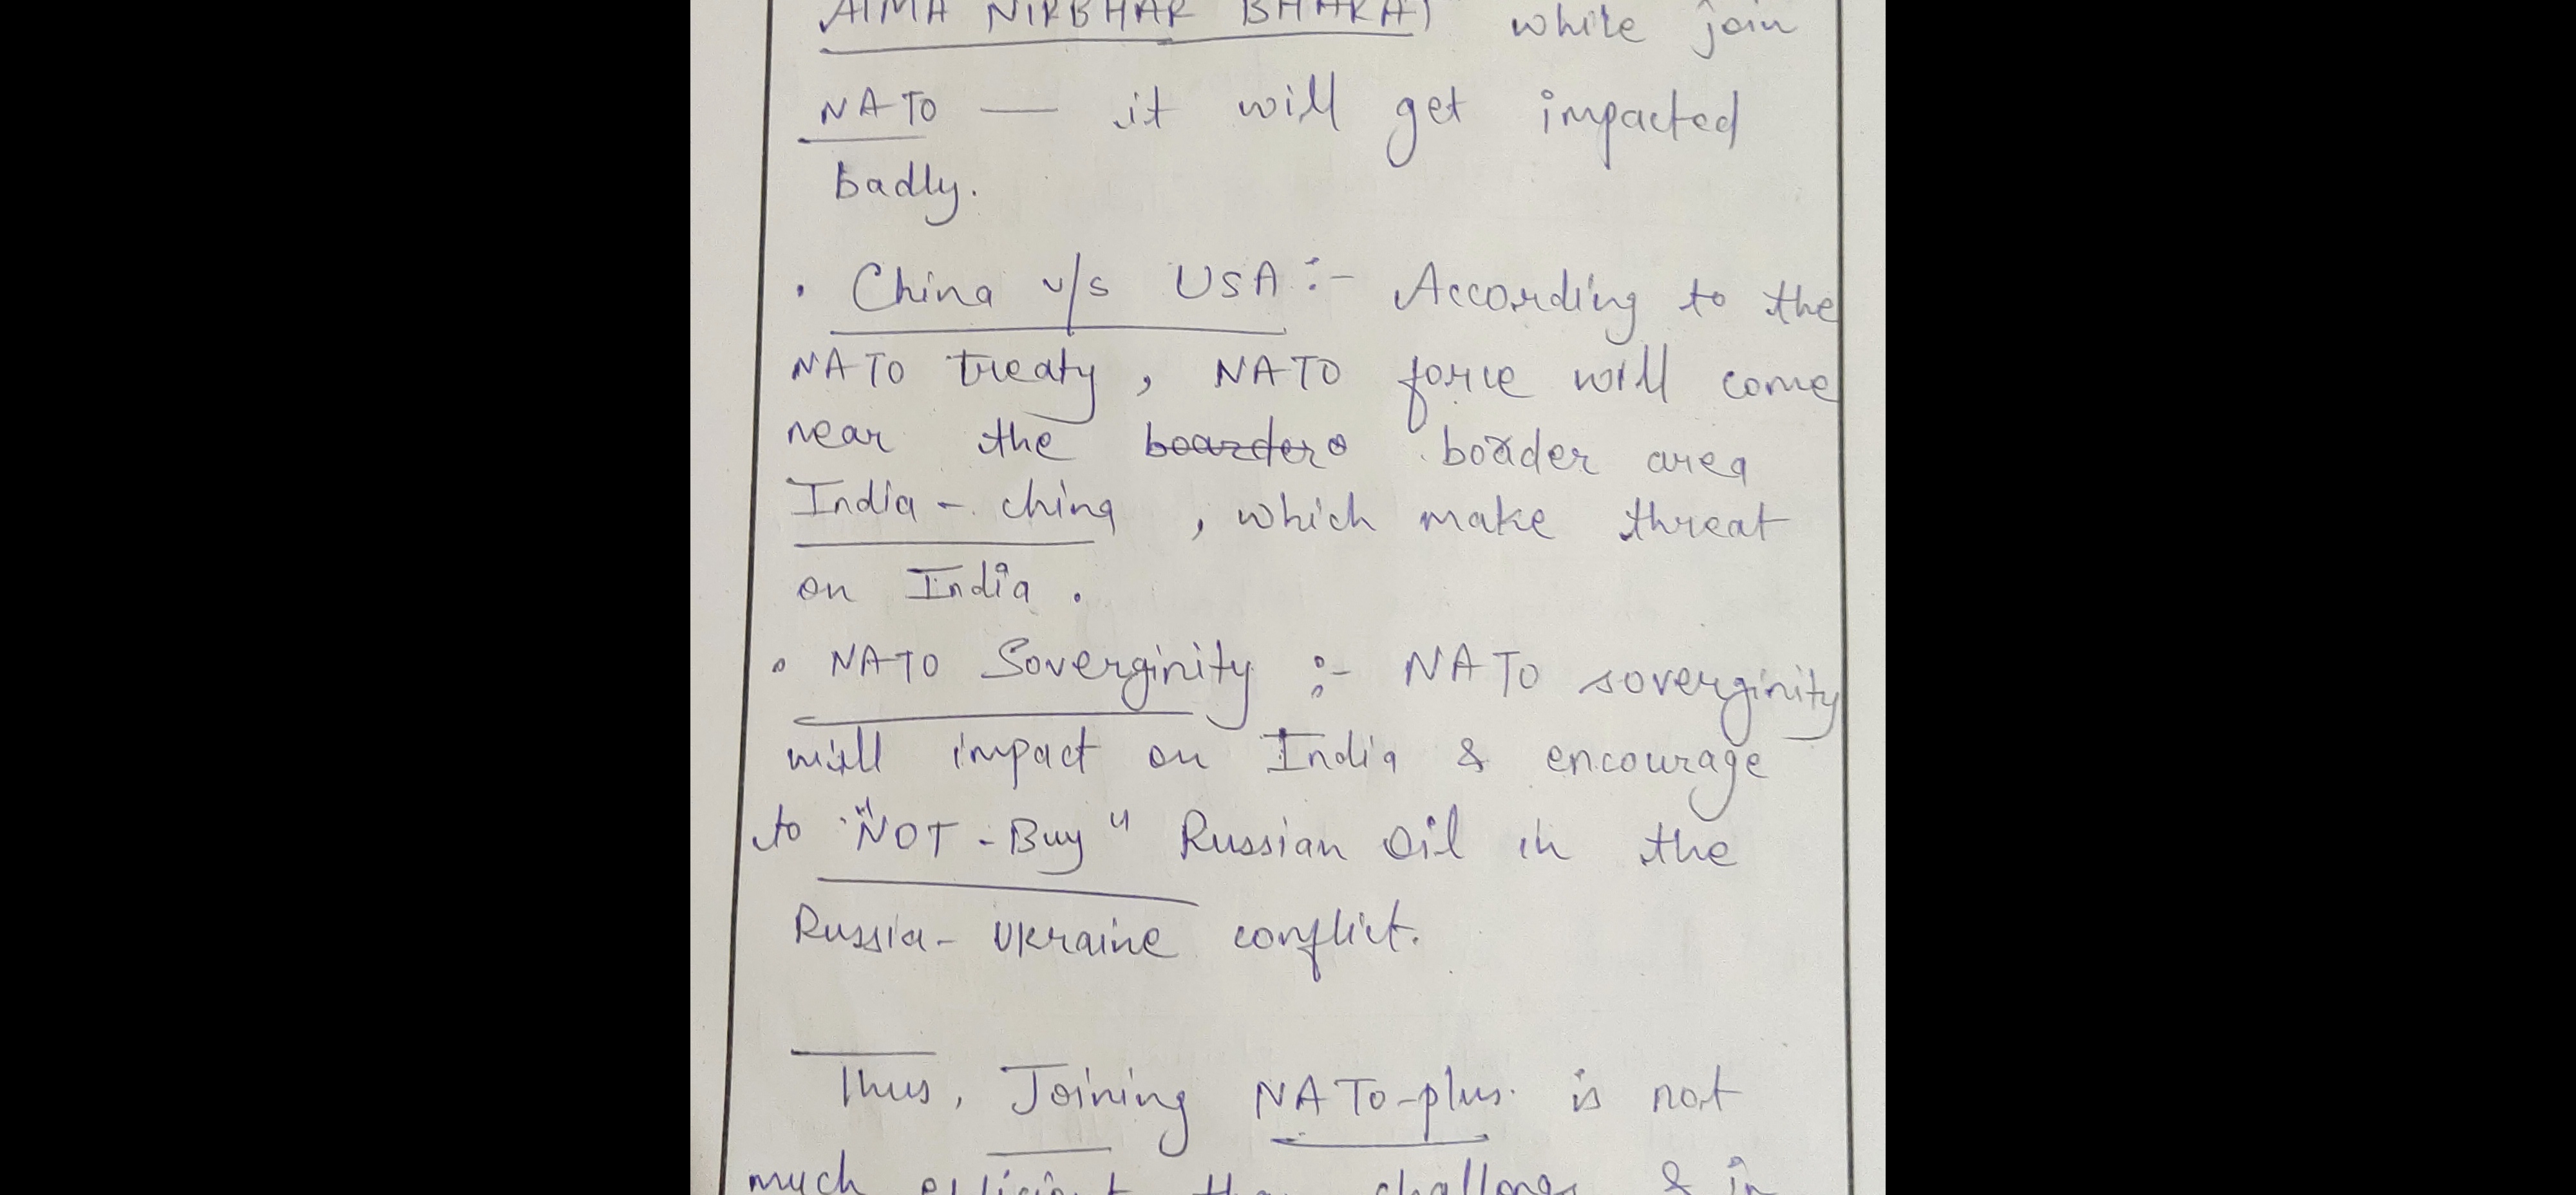 ATMA NIRBHAR BHARAT while join
NATO — it will get impacted
Badly.
• China v/s USA :- According to the
NATO treaty, NATO force will come
near the boarder border area
India - china, which make threat
on India.
• NATO Soverginity :- NATO soverginity
will impact on India & encourage
to "NOT - Buy" Russian Oil in the
Russia - Ukraine conflict.
Thus, Joining NATO-plus is not
much efficient & in